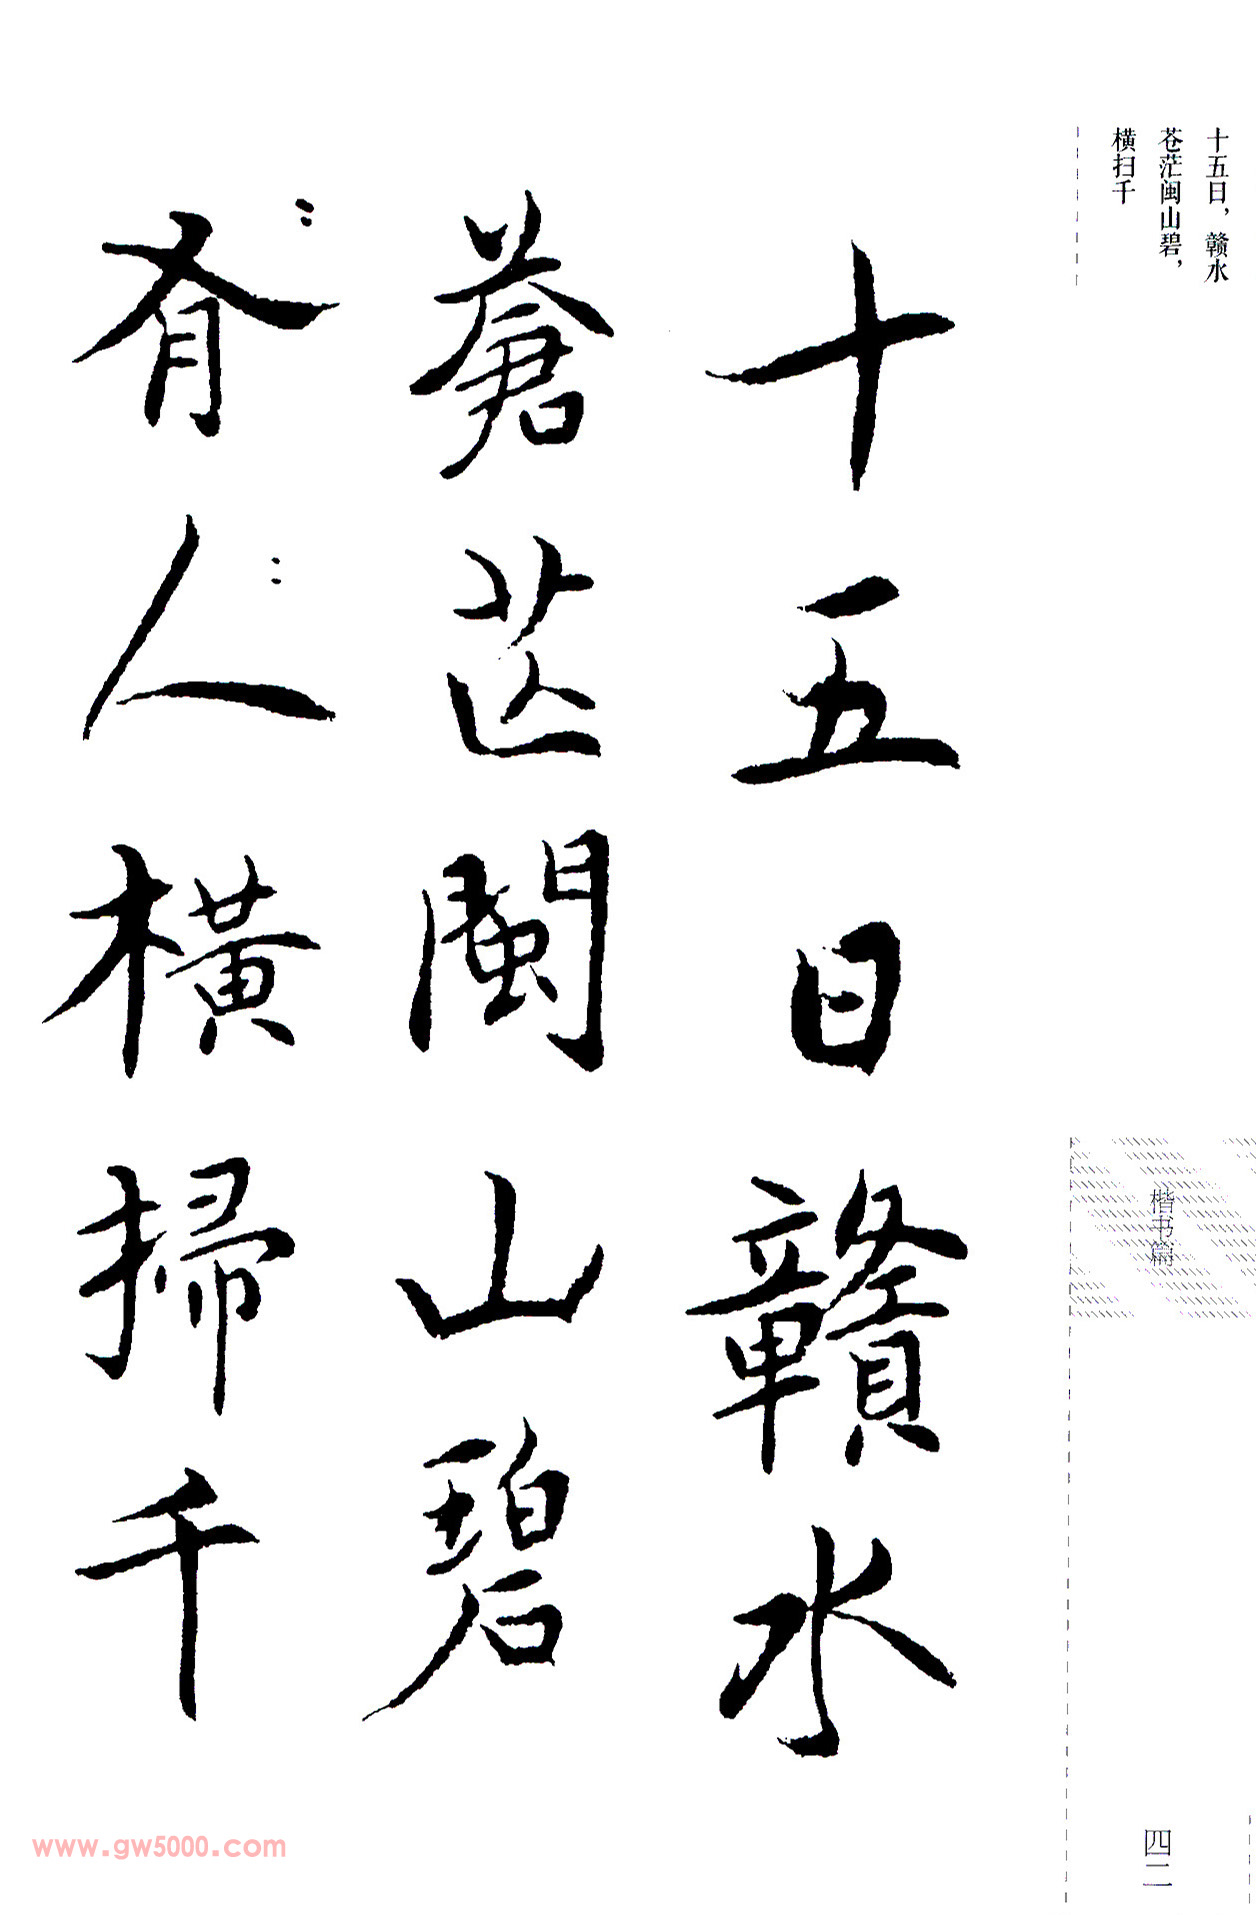 十五日，赣水
苍茫闽山碧，
横扫千
楷书篇
四二
十五日贛水
蒼茫閩山碧
有人橫掃千
www.gw5000.com